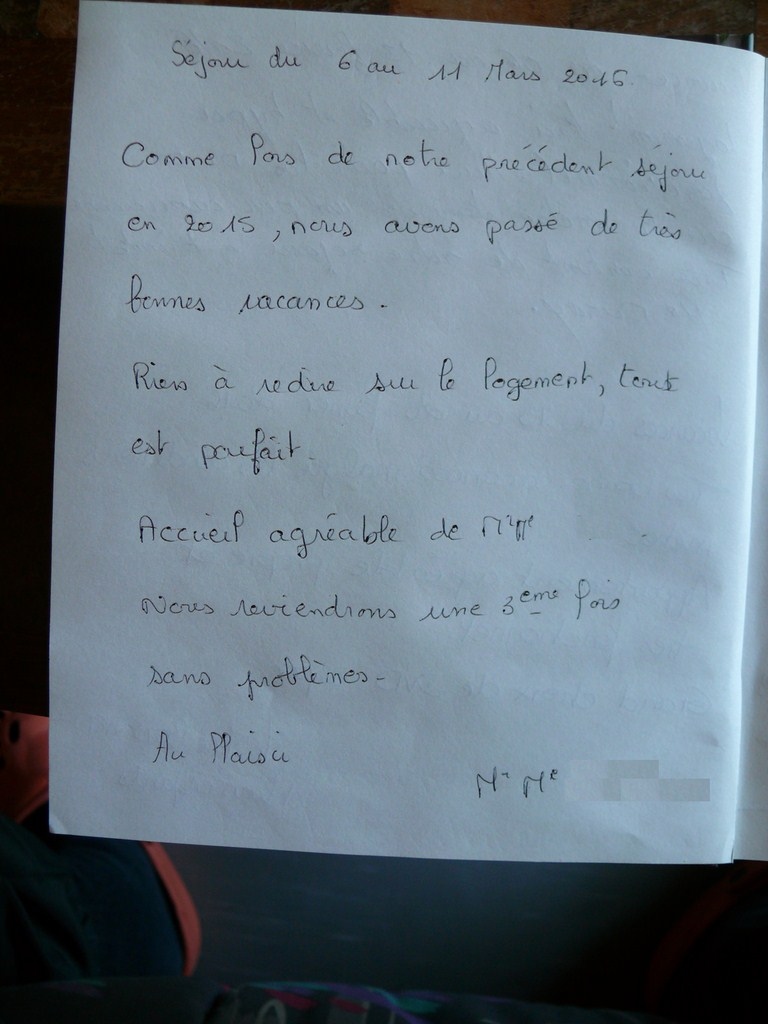 Séjour du 6 au 11 Mars 2016.
Comme lors de notre précédent séjour
en 2015, nous avons passé de très
bonnes vacances.
Rien à redire sur le logement, tout
est parfait.
Accueil agréable de Mr Me
Nous reviendrons une 3eme fois
sans problèmes-
Au Plaisir
Mr Me